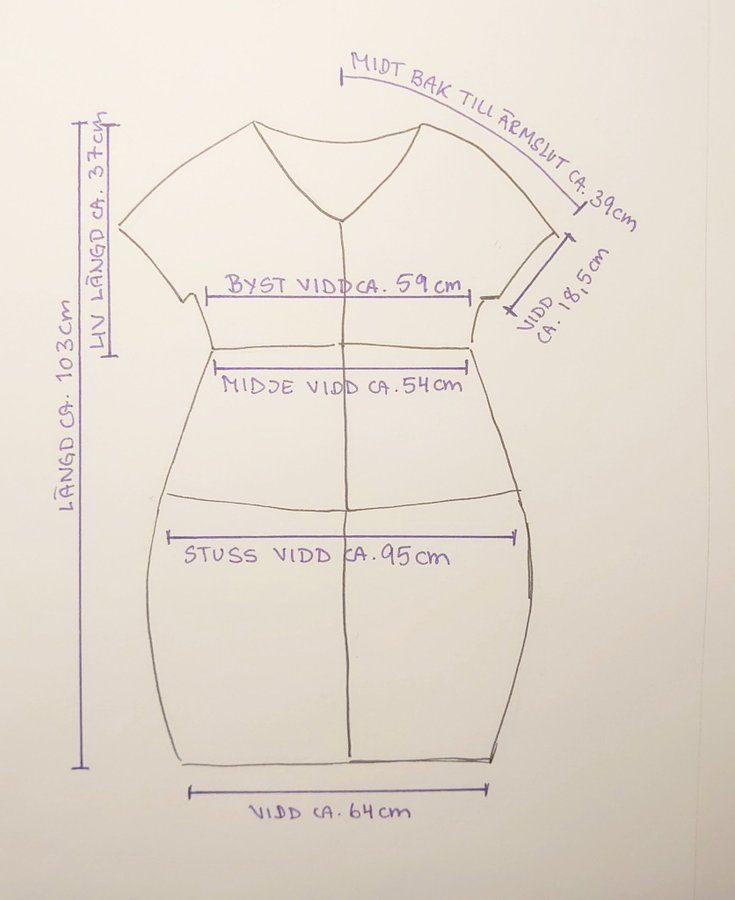 MIDT BAK TILL ÄRMSLUT CA. 39cm
LIV LÄNGD CA. 37cm
BYST VIDD CA. 59 cm
VIDD
CA. 18,5cm
LÄNGD CA. 103cm
MIDJE VIDD CA. 54cm
STUSS VIDD CA. 95cm
VIDD CA. 64cm